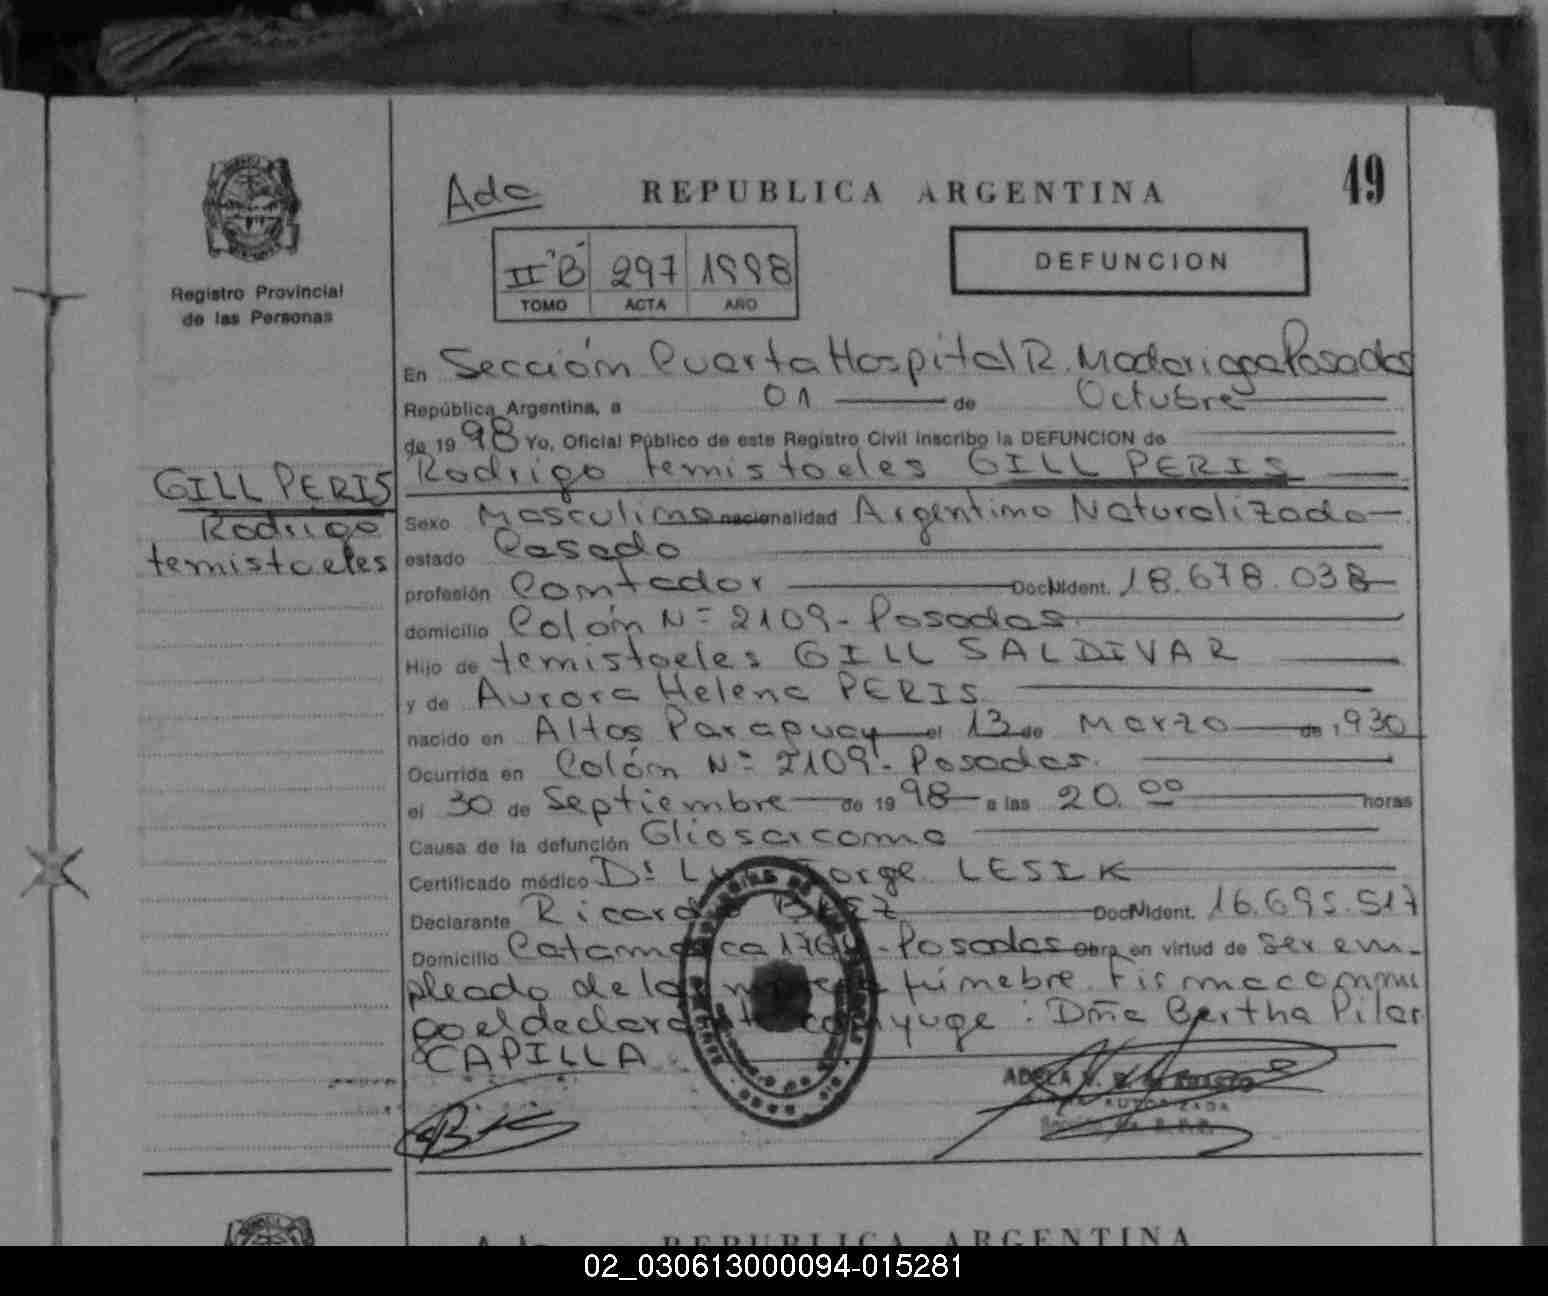 49
Ada
REPUBLICA ARGENTINA
II "B" 297 1998
TOMO ACTA AÑO
DEFUNCION
Registro Provincial
de las Personas
En Sección Cuarta Hospital R. Madariaga Posadas
República Argentina, a 01 de Octubre
de 1998 Yo, Oficial Público de este Registro Civil inscribo la DEFUNCION de
Rodrigo temistocles GILL PERIS
GILL PERIS
Rodrigo
temistocles
Sexo Masculino nacionalidad Argentino Naturalizado
estado Casado
profesión Contador Doc. Ident. 18.678.038
domicilio Colón Nº 2109 - Posadas
Hijo de temistocles GILL SALDIVAR
y de Aurora Helena PERIS
nacido en Altos Paraguay el 13 de Marzo de 1930
Ocurrida en Colón Nº 2109 - Posadas.
el 30 de Septiembre de 1998 a las 20.00 horas
Causa de la defunción Gliosarcoma
Certificado médico Dr Jorge LESIK
Declarante Ricardo Doc. Ident. 16.695.517
Domicilio Catamarca - Posadas Obra en virtud de ser em-
pleado de la fúnebre. Firma conmi
go el declarante conyuge: Dña Bertha Pilar
CAPILLA
REPUBLICA ARGENTINA
02_030613000094-015281